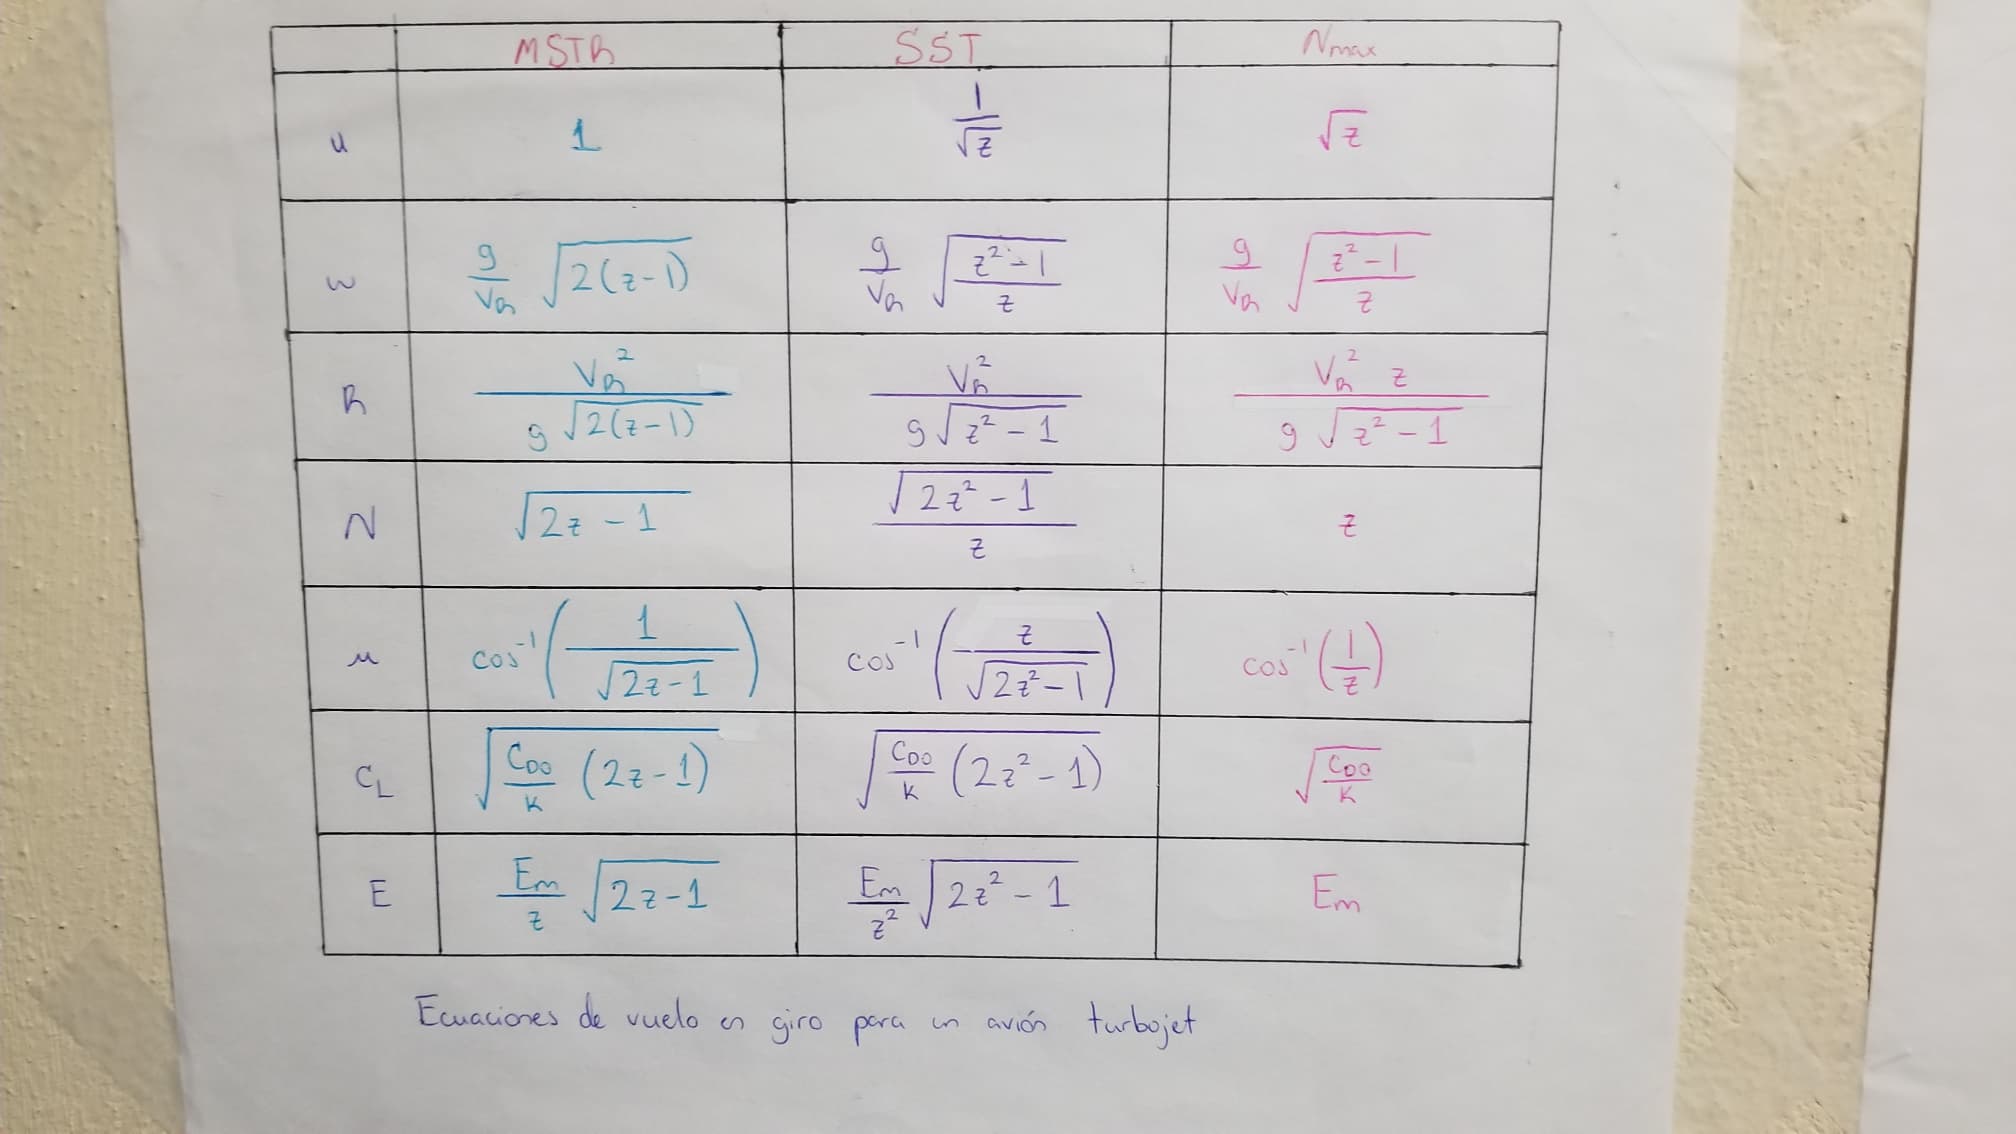 MSTR SST Nmax
u 1 1/√z √z
w g/V_R √(2(z-1)) g/V_R √((z²-1)/z) g/V_R √((z²-1)/z)
R V_R²/(g√(2(z-1))) V_R²/(g√(z²-1)) V_R² z/(g√(z²-1))
N √(2z-1) √(2z²-1)/z z
μ cos⁻¹(1/√(2z-1)) cos⁻¹(z/√(2z²-1)) cos⁻¹(1/z)
C_L √(C_DO/K (2z-1)) √(C_DO/K (2z²-1)) √(C_DO/K)
E E_m/z √(2z-1) E_m/z² √(2z²-1) E_m
Ecuaciones de vuelo en giro para un avión turbojet